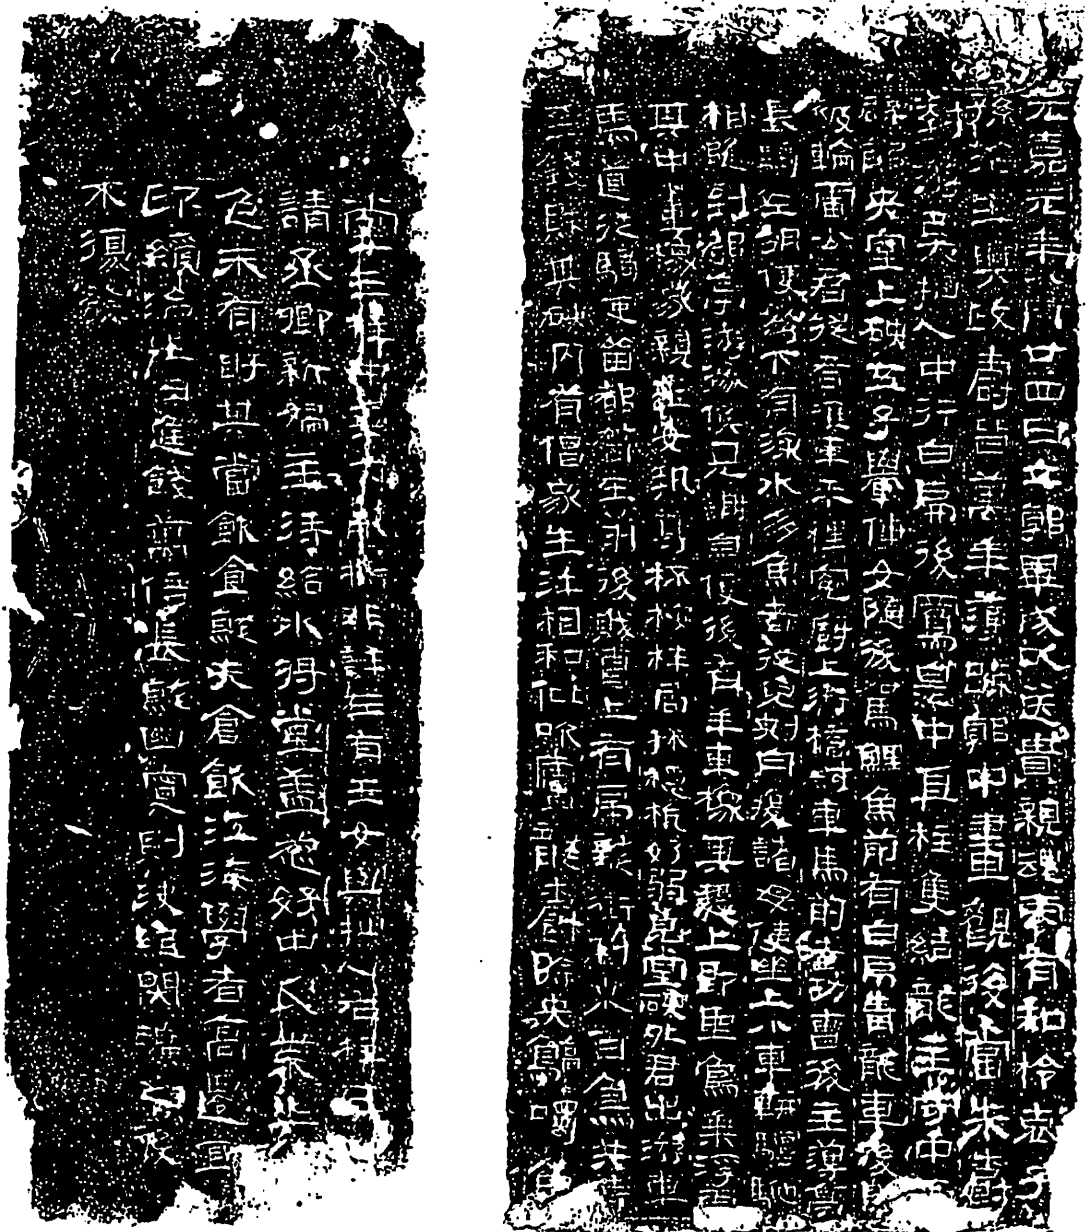 元嘉元年八月廿四日立郭畢成以送貴親魂零有知柃哀子
孫治生興政壽皆萬年薄踈郭中畫觀後當朱爵
對游㚒抴人中行白虎後鳳皇中直柱雙結龍主守中
霤辟邪央室上硤五子轝僮女隨後駕鯉魚前有白虎青龍車後即
被輪雷公君從者推車平梩冤厨上衛橋尉車馬前者功曹後主簿亭
長騎佐胡使弩下有流水多魚者從兒刺舟渡諸母使坐上小車軿驅馳
相隨到都亭游徼候見謝自便後有羊車橡其槥上即聖鳥乘浮雲
其中畫橡家親玉女執尊杯桉柈局秫穩杭好弱皃堂硤外君出游車
馬道從騎吏留都督在前後賊曹上有虎龍銜利來百鳥共侍
至錢財其硤內有倡家生汙相和仳吹廬龍爵除央鶴噣魚
堂三柱中非詳左有玉女與抴人右柱
請丞卿新婦主待給水將堂盖葱好中瓜葉
色末有盱其當飲食就夫倉飲江海學者高遷宜
印綬治生日進錢萬倍長就幽冥則決絕閉曠之後
不復發